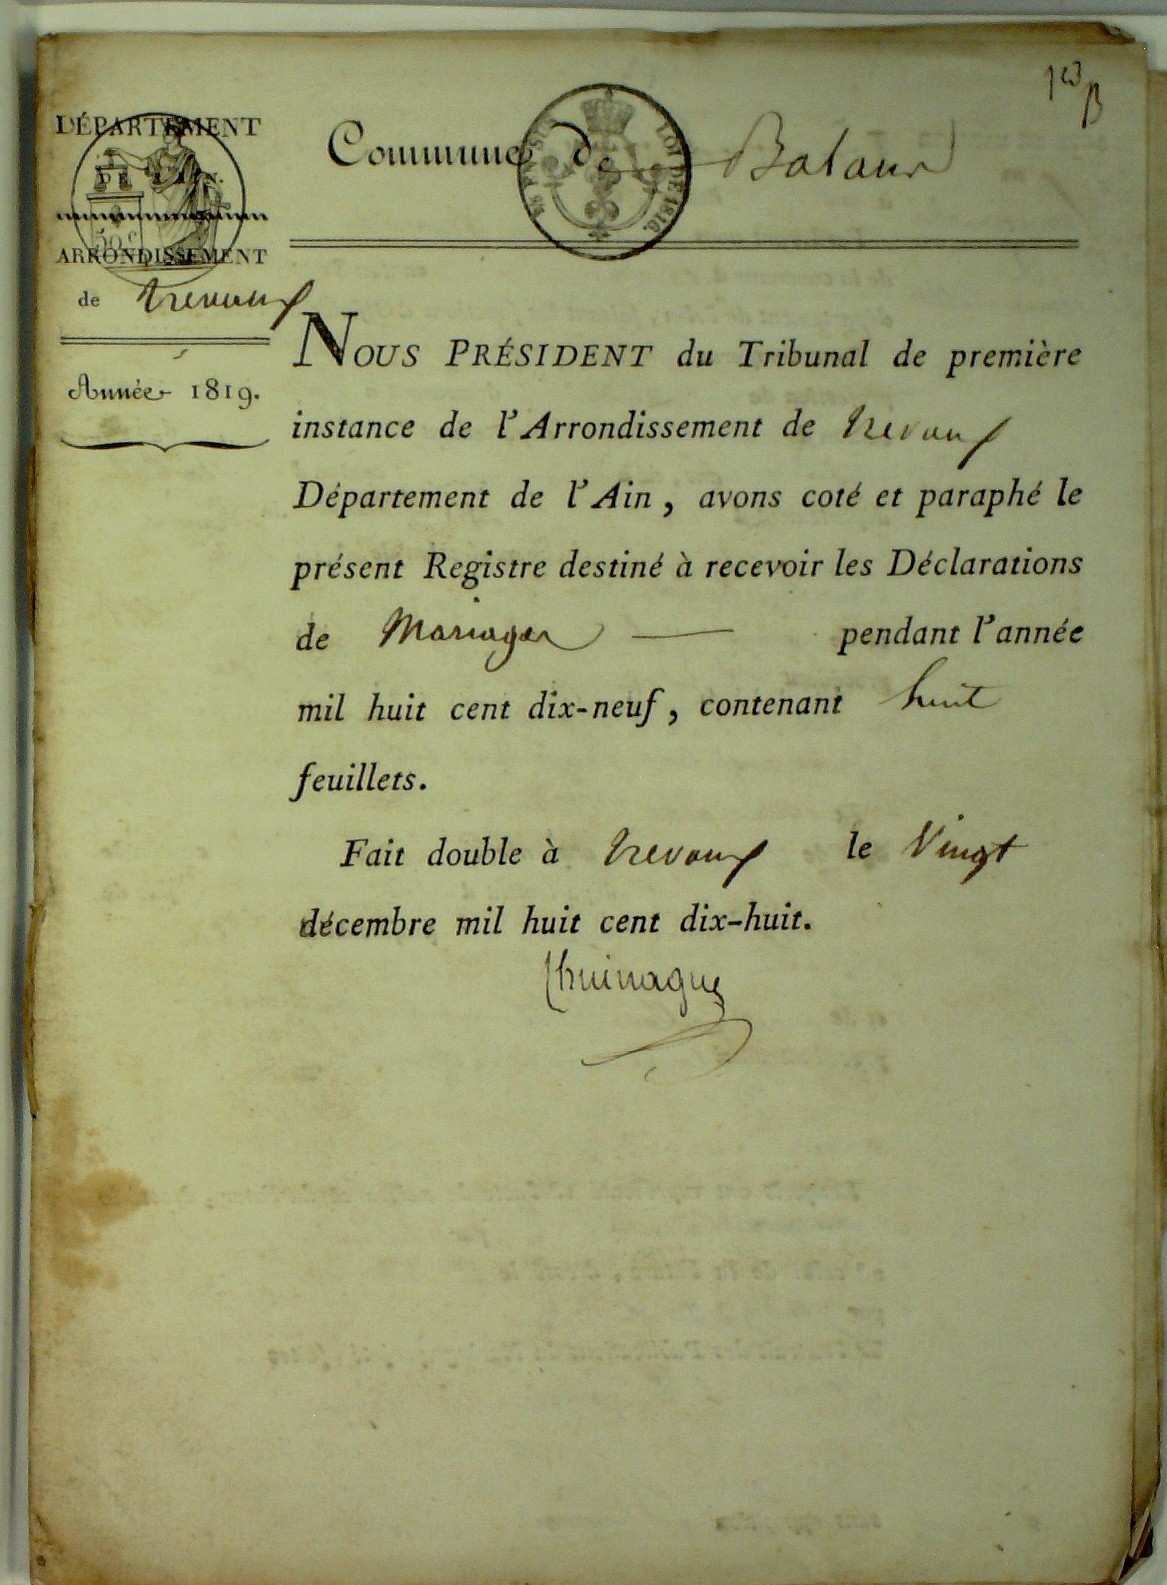 DÉPARTEMENT
DE L'AIN.
ARRONDISSEMENT
de Trevoux
Année 1819.
Commune de Balan
LOI DE 1816.
50 c
NOUS PRÉSIDENT du Tribunal de première
instance de l'Arrondissement de Trevoux
Département de l'Ain, avons coté et paraphé le
présent Registre destiné à recevoir les Déclarations
de Mariages — pendant l'année
mil huit cent dix-neuf, contenant huit
feuillets.
Fait double à Trevoux le Vingt
décembre mil huit cent dix-huit.